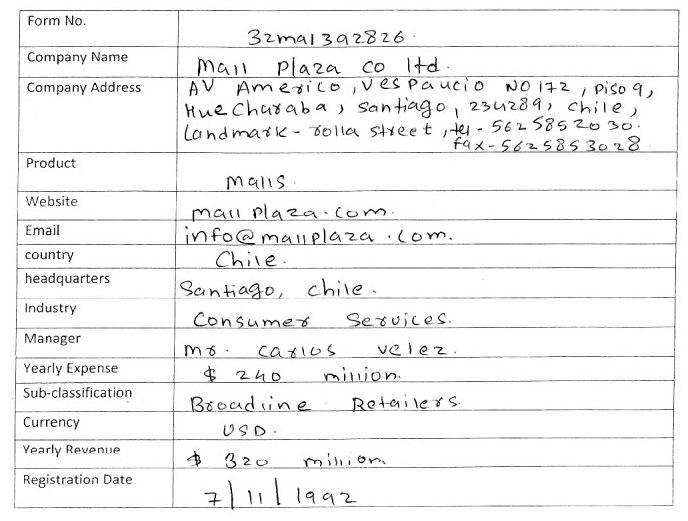 Form No.
32ma1392826.
Company Name
Mall Plaza co ltd.
Company Address
AV Americo, Vespaucio NO 172, Piso 9,
Huechuraba, Santiago, 234289, Chile,
Landmark - rolla street, tel - 5625852030.
fax - 5625853028
Product
Malls.
Website
mallplaza.com.
Email
info@mallplaza.com.
country
Chile.
headquarters
Santiago, chile.
Industry
Consumer Services.
Manager
Mr. Carlos velez.
Yearly Expense
$ 240 million.
Sub-classification
Broadline Retailers.
Currency
USD.
Yearly Revenue
$ 320 million.
Registration Date
7/11/1992